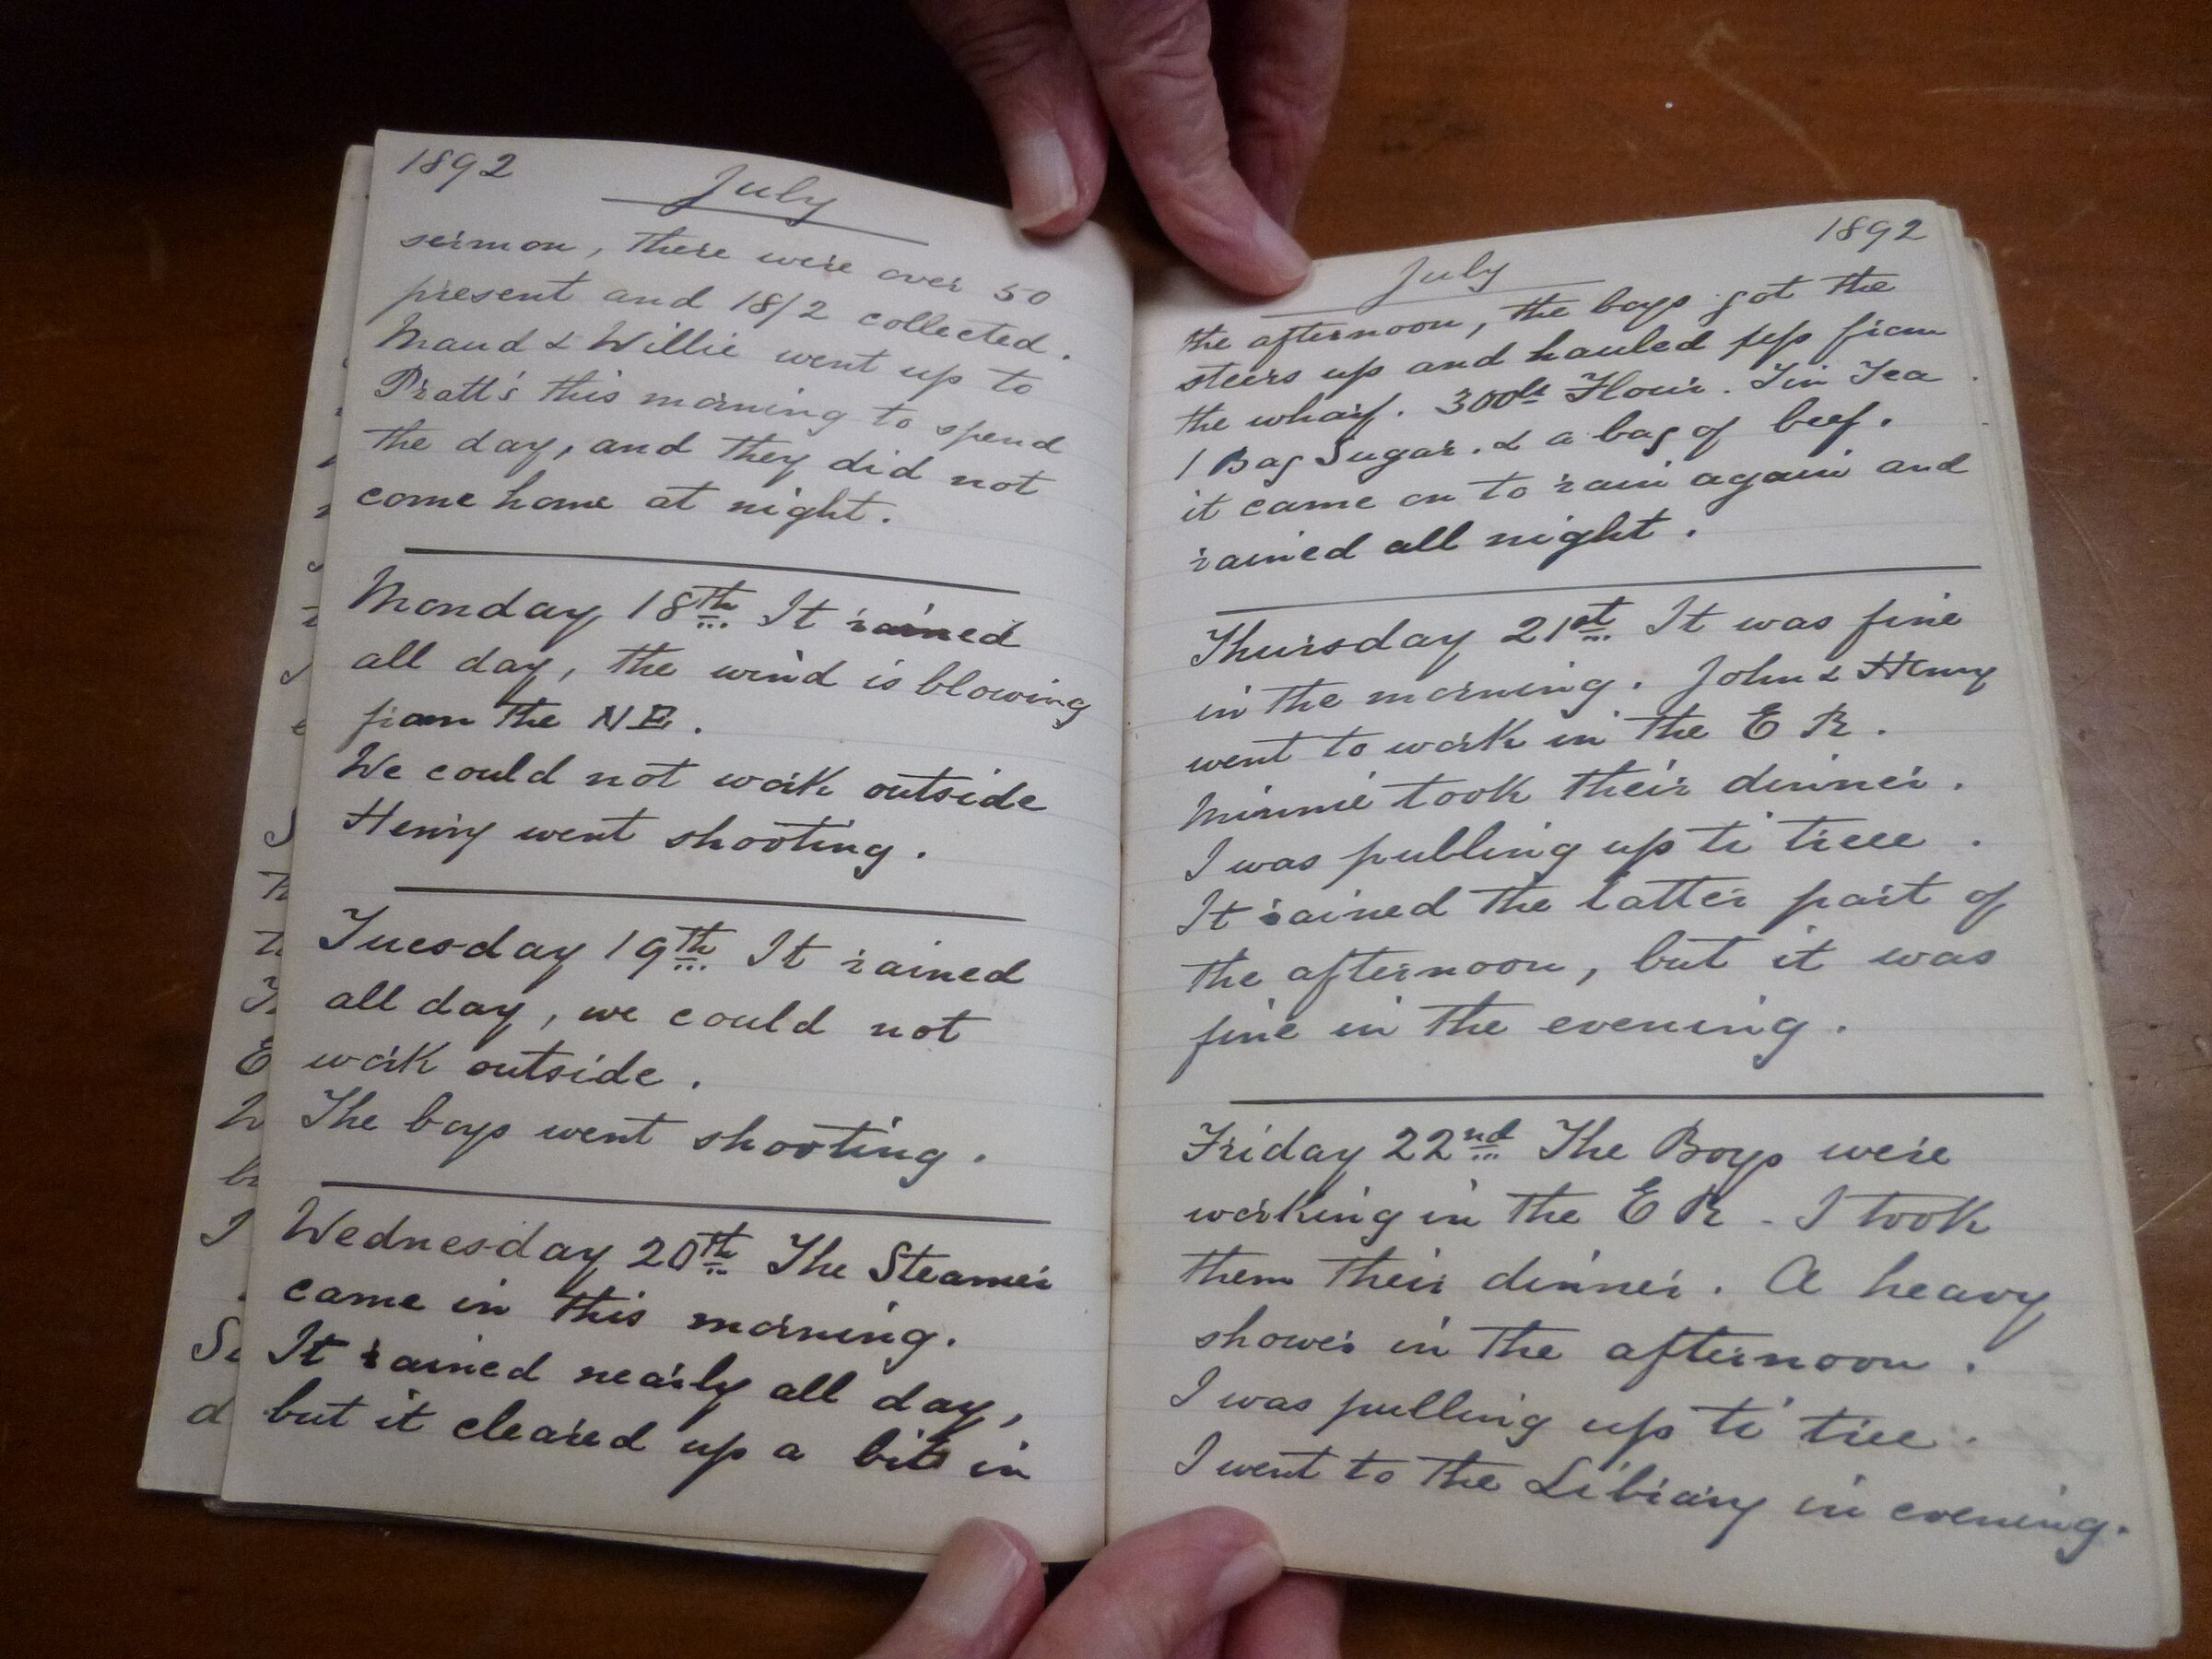 1892
July
sermon, there were over 50
present and 18/2 collected.
Maud & Willie went up to
Pratt's this morning to spend
the day, and they did not
come home at night.
Monday 18th It rained
all day, the wind is blowing
from the NE.
We could not work outside
Henry went shooting.
Tuesday 19th It rained
all day, we could not
work outside.
The boys went shooting.
Wednesday 20th The Steamer
came in this morning.
It rained nearly all day,
but it cleared up a bit in
1892
July
the afternoon, the boys got the
steers up and hauled up from
the wharf. 300lb Flour. Tin Tea
1 Bag Sugar. & a bag of beef.
it came on to rain again and
rained all night.
Thursday 21st It was fine
in the morning. John & Henry
went to work in the E R.
Minnie took their dinner.
I was pulling up ti tree.
It rained the latter part of
the afternoon, but it was
fine in the evening.
Friday 22nd The Boys were
working in the E R - I took
them their dinner. A heavy
shower in the afternoon.
I was pulling up ti tree.
I went to the Library in evening.